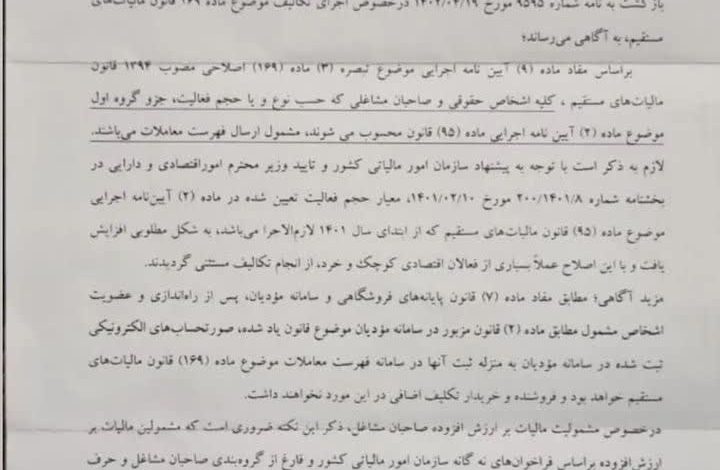 بازگشت به نامه شماره ۹۵۹۵ مورخ ۱۴۰۲/۰۴/۱۹ درخصوص اجرای تکالیف موضوع ماده ۱۶۹ قانون مالیات‌های
مستقیم، به آگاهی می‌رساند؛
براساس مفاد ماده (۹) آیین نامه اجرایی موضوع تبصره (۳) ماده (۱۶۹) اصلاحی مصوب ۱۳۹۴ قانون
مالیات‌های مستقیم ، کلیه اشخاص حقوقی و صاحبان مشاغلی که حسب نوع و یا حجم فعالیت، جزو گروه اول
موضوع ماده (۲) آیین نامه اجرایی ماده (۹۵) قانون محسوب می شوند، مشمول ارسال فهرست معاملات می‌باشند.
لازم به ذکر است با توجه به پیشنهاد سازمان امور مالیاتی کشور و تایید وزیر محترم اموراقتصادی و دارایی در
بخشنامه شماره ۲۰۰/۱۴۰۱/۸ مورخ ۱۴۰۱/۰۲/۱۰، معیار حجم فعالیت تعیین شده در ماده (۲) آیین‌نامه اجرایی
موضوع ماده (۹۵) قانون مالیات‌های مستقیم که از ابتدای سال ۱۴۰۱ لازم‌الاجرا می‌باشد، به شکل مطلوبی افزایش
یافت و با این اصلاح عملاً بسیاری از فعالان اقتصادی کوچک و خرد، از انجام تکالیف مستثنی گردیدند.
مزید آگاهی؛ مطابق مفاد ماده (۷) قانون پایانه‌های فروشگاهی و سامانه مؤدیان، پس از راه‌اندازی و عضویت
اشخاص مشمول مطابق ماده (۲) قانون مزبور در سامانه مؤدیان موضوع قانون یاد شده، صورتحساب‌های الکترونیکی
ثبت شده در سامانه مؤدیان به منزله ثبت آنها در سامانه فهرست معاملات موضوع ماده (۱۶۹) قانون مالیات‌های
مستقیم خواهد بود و فروشنده و خریدار تکلیف اضافی در این مورد نخواهند داشت.
درخصوص مشمولیت مالیات بر ارزش افزوده صاحبان مشاغل، ذکر این نکته ضروری است که مشمولین مالیات بر
ارزش افزوده براساس فراخوان‌های نه گانه سازمان امور مالیاتی کشور و فارغ از گروه‌بندی صاحبان مشاغل و حرف